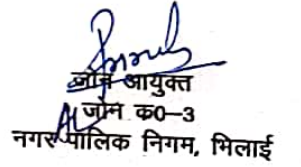 जोन आयुक्त
जोन क0-3
नगर पालिक निगम, भिलाई